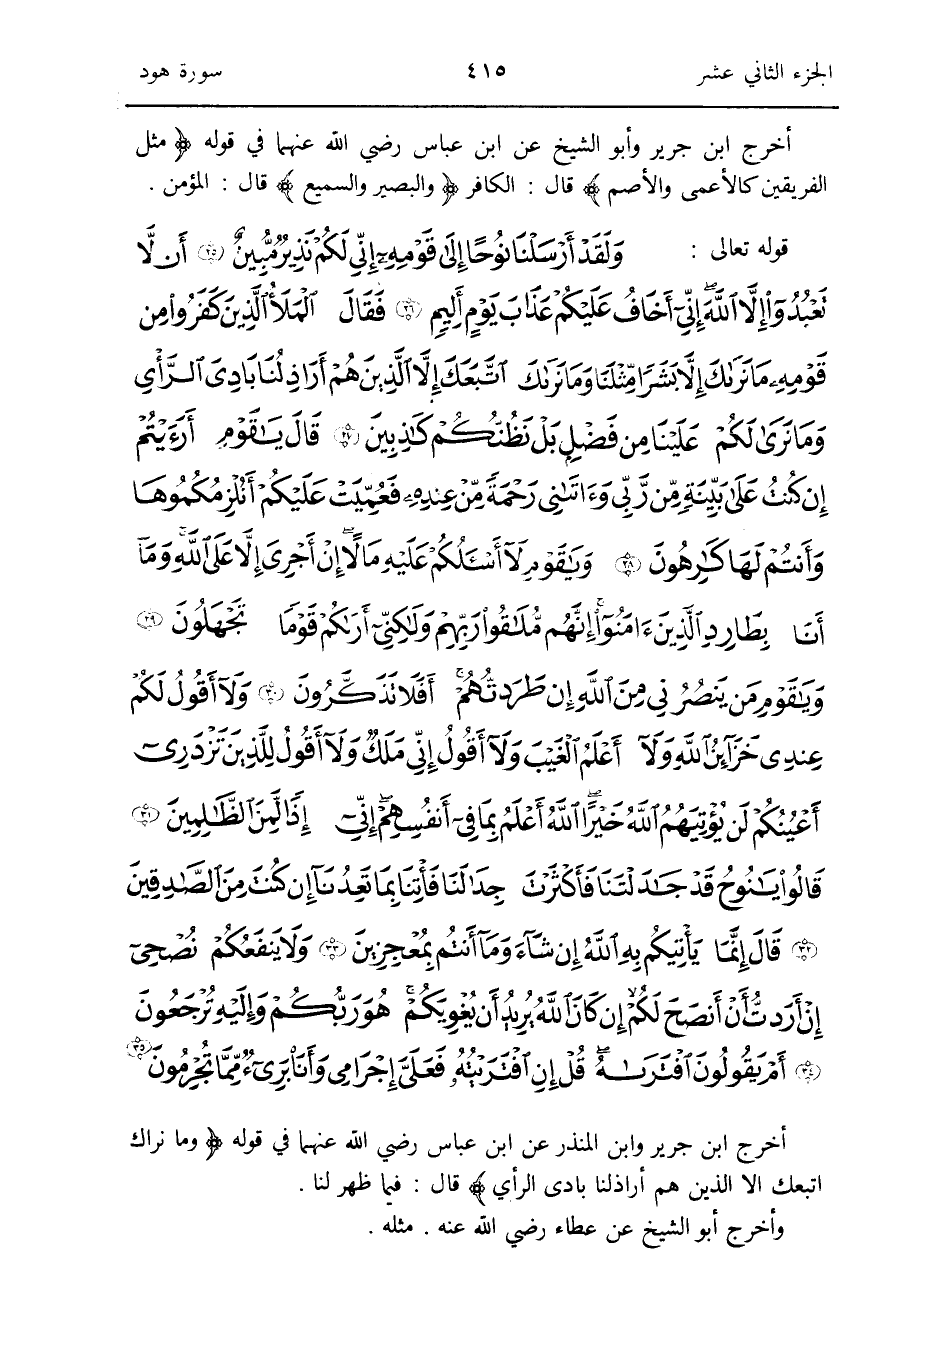 الجزء الثاني عشر ٤١٥ سورة هود
أخرج ابن جرير وأبو الشيخ عن ابن عباس رضي الله عنهما في قوله ﴿ مثل
الفريقين كالأعمى والأصم ﴾ قال : الكافر ﴿ والبصير والسميع ﴾ قال : المؤمن .
قوله تعالى : وَلَقَدْ أَرْسَلْنَا نُوحًا إِلَىٰ قَوْمِهِۦٓ إِنِّي لَكُمْ نَذِيرٌ مُّبِينٌ ﴿٢٥﴾ أَن لَّا
تَعْبُدُوٓا۟ إِلَّا ٱللَّهَ ۖ إِنِّيٓ أَخَافُ عَلَيْكُمْ عَذَابَ يَوْمٍ أَلِيمٍ ﴿٢٦﴾ فَقَالَ ٱلْمَلَأُ ٱلَّذِينَ كَفَرُوا۟ مِن
قَوْمِهِۦ مَا نَرَىٰكَ إِلَّا بَشَرًا مِّثْلَنَا وَمَا نَرَىٰكَ ٱتَّبَعَكَ إِلَّا ٱلَّذِينَ هُمْ أَرَاذِلُنَا بَادِىَ ٱلرَّأْىِ
وَمَا نَرَىٰ لَكُمْ عَلَيْنَا مِن فَضْلٍ بَلْ نَظُنُّكُمْ كَٰذِبِينَ ﴿٢٧﴾ قَالَ يَٰقَوْمِ أَرَءَيْتُمْ
إِن كُنتُ عَلَىٰ بَيِّنَةٍ مِّن رَّبِّي وَءَاتَىٰنِي رَحْمَةً مِّنْ عِندِهِۦ فَعُمِّيَتْ عَلَيْكُمْ أَنُلْزِمُكُمُوهَا
وَأَنتُمْ لَهَا كَٰرِهُونَ ﴿٢٨﴾ وَيَٰقَوْمِ لَآ أَسْـَٔلُكُمْ عَلَيْهِ مَالًا ۖ إِنْ أَجْرِيَ إِلَّا عَلَى ٱللَّهِ ۚ وَمَآ
أَنَا۠ بِطَارِدِ ٱلَّذِينَ ءَامَنُوٓا۟ ۚ إِنَّهُم مُّلَٰقُوا۟ رَبِّهِمْ وَلَٰكِنِّيٓ أَرَىٰكُمْ قَوْمًا تَجْهَلُونَ ﴿٢٩﴾
وَيَٰقَوْمِ مَن يَنصُرُنِي مِنَ ٱللَّهِ إِن طَرَدتُّهُمْ ۚ أَفَلَا تَذَكَّرُونَ ﴿٣٠﴾ وَلَآ أَقُولُ لَكُمْ
عِندِي خَزَآئِنُ ٱللَّهِ وَلَآ أَعْلَمُ ٱلْغَيْبَ وَلَآ أَقُولُ إِنِّي مَلَكٌ وَلَآ أَقُولُ لِلَّذِينَ تَزْدَرِىٓ
أَعْيُنُكُمْ لَن يُؤْتِيَهُمُ ٱللَّهُ خَيْرًا ۖ ٱللَّهُ أَعْلَمُ بِمَا فِيٓ أَنفُسِهِمْ ۖ إِنِّيٓ إِذًا لَّمِنَ ٱلظَّٰلِمِينَ ﴿٣١﴾
قَالُوا۟ يَٰنُوحُ قَدْ جَٰدَلْتَنَا فَأَكْثَرْتَ جِدَٰلَنَا فَأْتِنَا بِمَا تَعِدُنَآ إِن كُنتَ مِنَ ٱلصَّٰدِقِينَ
﴿٣٢﴾ قَالَ إِنَّمَا يَأْتِيكُم بِهِ ٱللَّهُ إِن شَآءَ وَمَآ أَنتُم بِمُعْجِزِينَ ﴿٣٣﴾ وَلَا يَنفَعُكُمْ نُصْحِىٓ
إِنْ أَرَدتُّ أَنْ أَنصَحَ لَكُمْ إِن كَانَ ٱللَّهُ يُرِيدُ أَن يُغْوِيَكُمْ ۚ هُوَ رَبُّكُمْ وَإِلَيْهِ تُرْجَعُونَ
﴿٣٤﴾ أَمْ يَقُولُونَ ٱفْتَرَىٰهُ ۖ قُلْ إِنِ ٱفْتَرَيْتُهُۥ فَعَلَيَّ إِجْرَامِي وَأَنَا۠ بَرِىٓءٌ مِّمَّا تُجْرِمُونَ ﴿٣٥﴾
أخرج ابن جرير وابن المنذر عن ابن عباس رضي الله عنهما في قوله ﴿ وما نراك
اتبعك الا الذين هم أراذلنا بادى الرأي ﴾ قال : فيما ظهر لنا .
وأخرج أبو الشيخ عن عطاء رضي الله عنه . مثله .